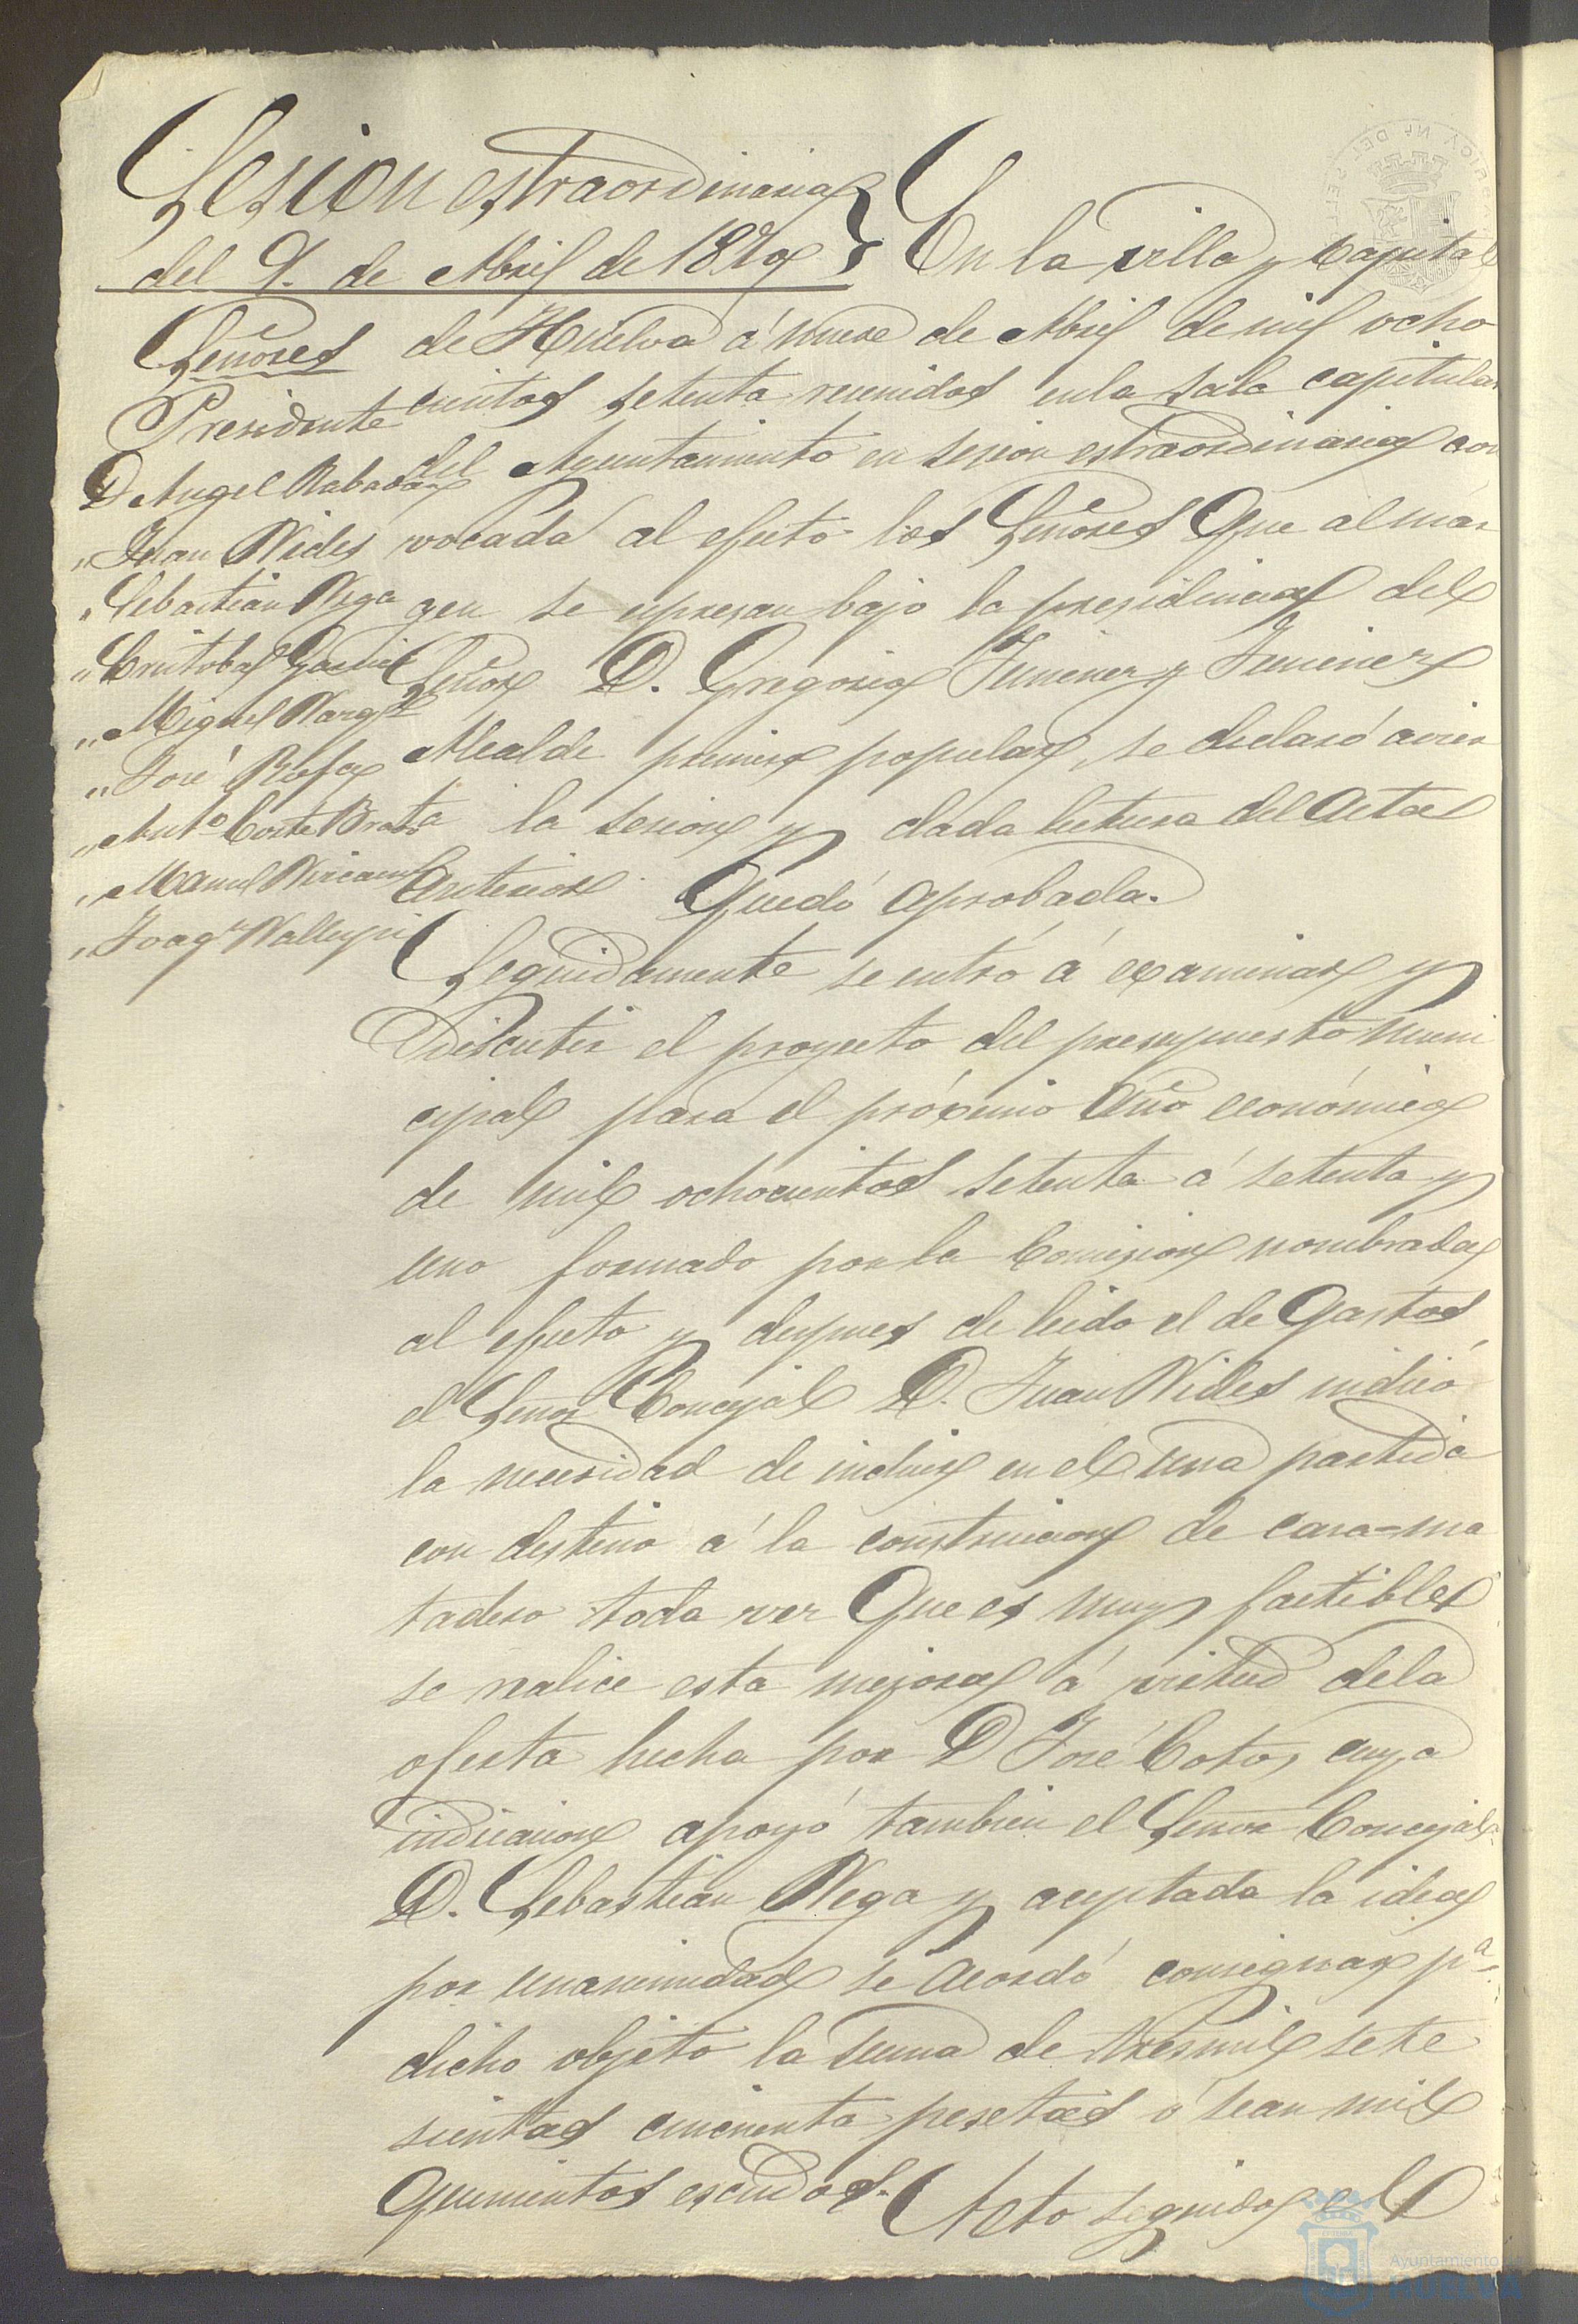 Sesion estraordinaria
del 9. de Abril de 1870
En la villa y Capital
Señores
Presidente
D Angel Rabadan
" Juan Vides
" Sebastian Vega
" Cristobal Garcia
" Miguel
" José
" Antº Corte Bravo
" Manuel
" Joaqⁿ
de Huelva á nueve de Abril de mil ocho
cientos setenta reunidos en la sala capitular
del Ayuntamiento en sesion estraordinaria con
vocada al efecto los Señores Que al már
gen se espresan bajo la presidencia del
Señor D. Gregorio Jimenez y Jimenez
Alcalde primero popular, se declaró avier
ta la sesion y dada lectura del Acta
Anterior Quedó Aprobada.
Seguidamente se entró á examinar y
Discutir el proyecto del presupuesto Muni
cipal para el próximo Año económico
de mil ochocientos setenta á setenta y
uno formado por la Comision nombrada
al efecto y despues de leido el de Gastos
el Señor Concejal D. Juan Vides indicó
la necesidad de incluir en el una partida
con destino á la construccion de casa=ma
tadero toda vez Que es muy factible
se realice esta mejora á virtud de la
oferta hecha por D José Coto, cuya
indicacion apoyó tambien el Señor Concejal
D. Sebastian Vega y aceptada la idea
por unanimidad se Acordó consignar pª
dicho objeto la suma de tres mil sete
sientas cincuenta pesetas ó sean mil
Quinientos escudos. Acto seguido el
Ayuntamiento de
HUELVA